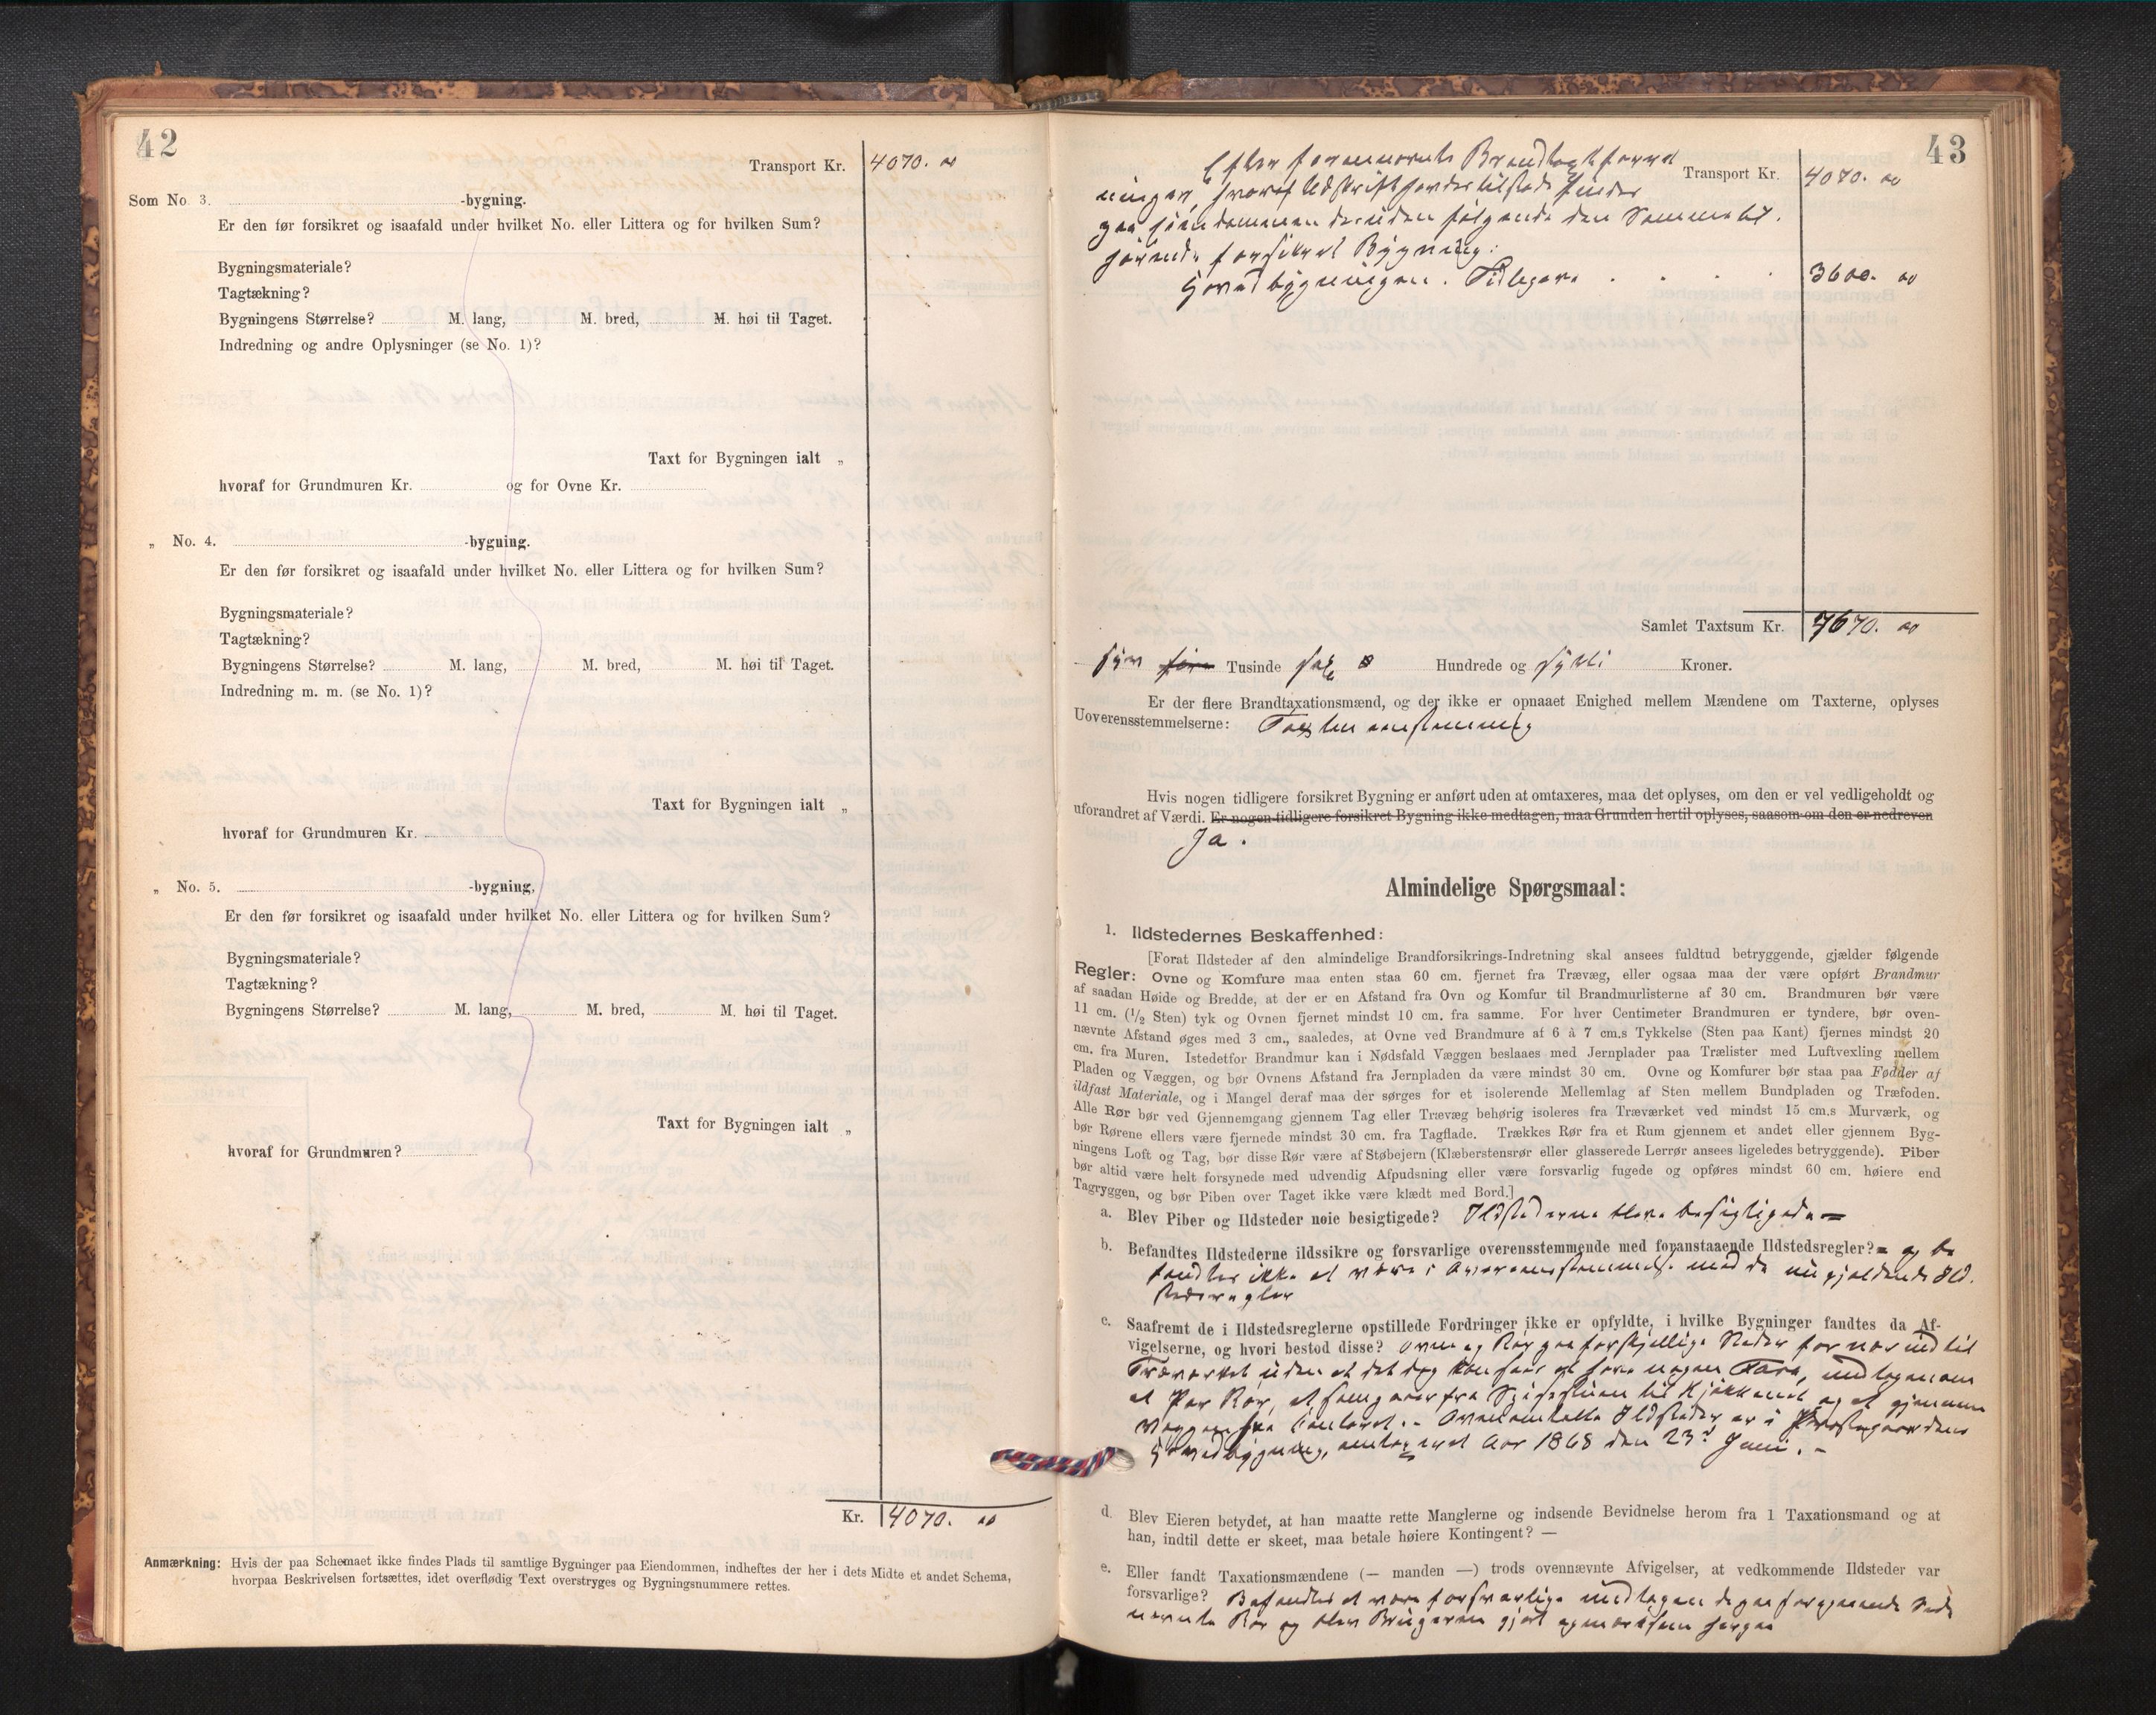 42
Transport Kr. 4070. 00
Som No. 3. -bygning.
Er den før forsikret og isaafald under hvilket No. eller Littera og for hvilken Sum?
Bygningsmateriale?
Tagtækning?
Bygningens Størrelse? M. lang, M. bred, M. høi til Taget.
Indredning og andre Oplysninger (se No. 1)?
Taxt for Bygningen ialt „
hvoraf for Grundmuren Kr. og for Ovne Kr.
„ No. 4. -bygning.
Er den før forsikret og isaafald under hvilket No. eller Littera og for hvilken Sum?
Bygningsmateriale?
Tagtækning?
Bygningens Størrelse? M. lang, M. bred, M. høi til Taget.
Indredning m. m. (se No. 1)?
Taxt for Bygningen ialt „
hvoraf for Grundmuren Kr.
„ No. 5. -bygning,
Er den før forsikret og isaafald under hvilket No. eller Littera og for hvilken Sum?
Bygningsmateriale?
Tagtækning?
Bygningens Størrelse? M. lang, M. bred, M. høi til Taget.
Taxt for Bygningen ialt „
hvoraf for Grundmuren?
Kr. 4070. 00
Anmærkning: Hvis der paa Schemaet ikke findes Plads til samtlige Bygninger paa Eiendommen, indheftes der her i dets Midte et andet Schema,
hvorpaa Beskrivelsen fortsættes, idet overflødig Text overstryges og Bygningsnummere rettes.
43
Efter forannævnte Brandtaxtforret
Transport Kr. 4070. 00
ninger, hvoraf Udskrift forder tilstede findes
paa Eiendommen desuden følgende den Samme til.
hørende forsikret Bygning:
Hovedbygningen. Tidligere . . . . 3600. 00
Samlet Taxtsum Kr. 7670. 00
syv fire Tusinde sex Hundrede og sytti Kroner.
Er der flere Brandtaxationsmænd, og der ikke er opnaaet Enighed mellem Mændene om Taxterne, oplyses
Uoverensstemmelserne: Taxten enstemmig
Hvis nogen tidligere forsikret Bygning er anført uden at omtaxeres, maa det oplyses, om den er vel vedligeholdt og
uforandret af Værdi. Er nogen tidligere forsikret Bygning ikke medtagen, maa Grunden hertil oplyses, saasom om den er nedreven
Ja.
Almindelige Spørgsmaal:
1. Ildstedernes Beskaffenhed:
[Forat Ildsteder af den almindelige Brandforsikrings-Indretning skal ansees fuldtud betryggende, gjælder følgende
Regler: Ovne og Komfure maa enten staa 60 cm. fjernet fra Trævæg, eller ogsaa maa der være opført Brandmur
af saadan Høide og Bredde, at der er en Afstand fra Ovn og Komfur til Brandmurlisterne af 30 cm. Brandmuren bør være
11 cm. (1/2 Sten) tyk og Ovnen fjernet mindst 10 cm. fra samme. For hver Centimeter Brandmuren er tyndere, bør oven-
nævnte Afstand øges med 3 cm., saaledes, at Ovne ved Brandmure af 6 à 7 cm.s Tykkelse (Sten paa Kant) fjernes mindst 20
cm. fra Muren. Istedetfor Brandmur kan i Nødsfald Væggen beslaaes med Jernplader paa Trælister med Luftvexling mellem
Pladen og Væggen, og bør Ovnens Afstand fra Jernpladen da være mindst 30 cm. Ovne og Komfurer bør staa paa Fødder af
ildfast Materiale, og i Mangel deraf maa der sørges for et isolerende Mellemlag af Sten mellem Bundpladen og Træfoden.
Alle Rør bør ved Gjennemgang gjennem Tag eller Trævæg behørig isoleres fra Træværket ved mindst 15 cm.s Murværk, og
bør Rørene ellers være fjernede mindst 30 cm. fra Tagflade. Trækkes Rør fra et Rum gjennem et andet eller gjennem Byg-
ningens Loft og Tag, bør disse Rør være af Støbejern (Klæberstensrør eller glasserede Lerrør ansees ligeledes betryggende). Piber
bør altid være helt forsynede med udvendig Afpudsning eller være forsvarlig fugede og opføres mindst 60 cm. høiere end
Tagryggen, og bør Piben over Taget ikke være klædt med Bord.]
a. Blev Piber og Ildsteder nøie besigtigede? Ildstederne bleve besigtigede =
b. Befandtes Ildstederne ildssikre og forsvarlige overensstemmende med foranstaaende Ildstedsregler? = og be
fandtes ikke at være i Overeensstemmelse med de nu gjældende Ild.
stedsregler
c. Saafremt de i Ildstedsreglerne opstillede Fordringer ikke er opfyldte, i hvilke Bygninger fandtes da Af-
vigelserne, og hvori bestod disse? Ovne og Rør paa forskjellige Steder for nær ind til
Træværket uden at det dog kan sees at have nogen Fare, undtagen om
et Par Rør, et som gaar fra Spisestuen til Kjøkkenet og et gjennem
Væggen fra Contoret. - Ovenomtalte Ildsteder er i Præstegaardens
Hovedbygning, omtaxeret Aar 1868 den 23de Juni. -
d. Blev Eieren betydet, at han maatte rette Manglerne og indsende Bevidnelse herom fra 1 Taxationsmand og at
han, indtil dette er skeet, maa betale høiere Kontingent? —
e. Eller fandt Taxationsmændene (— manden —) trods ovennævnte Afvigelser, at vedkommende Ildsteder var
forsvarlige? Befandtes at være forsvarlige undtagen de paa foregaaende Side
nævnte Rør og blev Brugeren gjort opmærksom herpaa